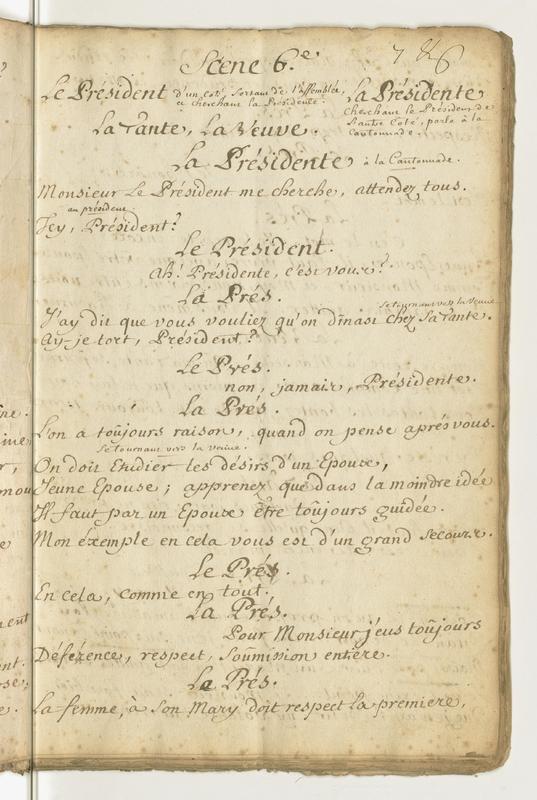 Scene 6.e
7 86
Le Président d'un coté, sortant de l'assemblée, et cherchant la Présidente.
La Présidente cherchant le Président de l'autre Coté, parle à la Cantonnade.
La Tante, La Veuve.
La Présidente à la Cantonnade.
Monsieur Le Président me cherche, attendez tous.
au président.
Icy, Président?
Le Président.
Ah! Présidente, c'est vous?
La Prés.
se tournant vers la Veuve
J'ay dit que vous vouliez qu'on dînast chez Sa Tante.
Ay-je tort, Président?
Le Prés.
non, jamais, Présidente.
La Prés.
L'on a toûjours raison, quand on pense aprés vous.
se tournant vers la veuve.
On doit Etudier les désirs d'un Epoux,
Jeune Epouse; apprenez que dans la moindre idée
Il faut par un Epoux être toûjours guidée.
Mon éxemple en cela vous est d'un grand Secours.
Le Prés.
En cela, comme en tout.
La Prés.
Pour Monsieur j'eus toûjours
Déférence, respect, Soûmission entiére.
Le Prés.
La femme, à Son Mary doit respect la premiere,